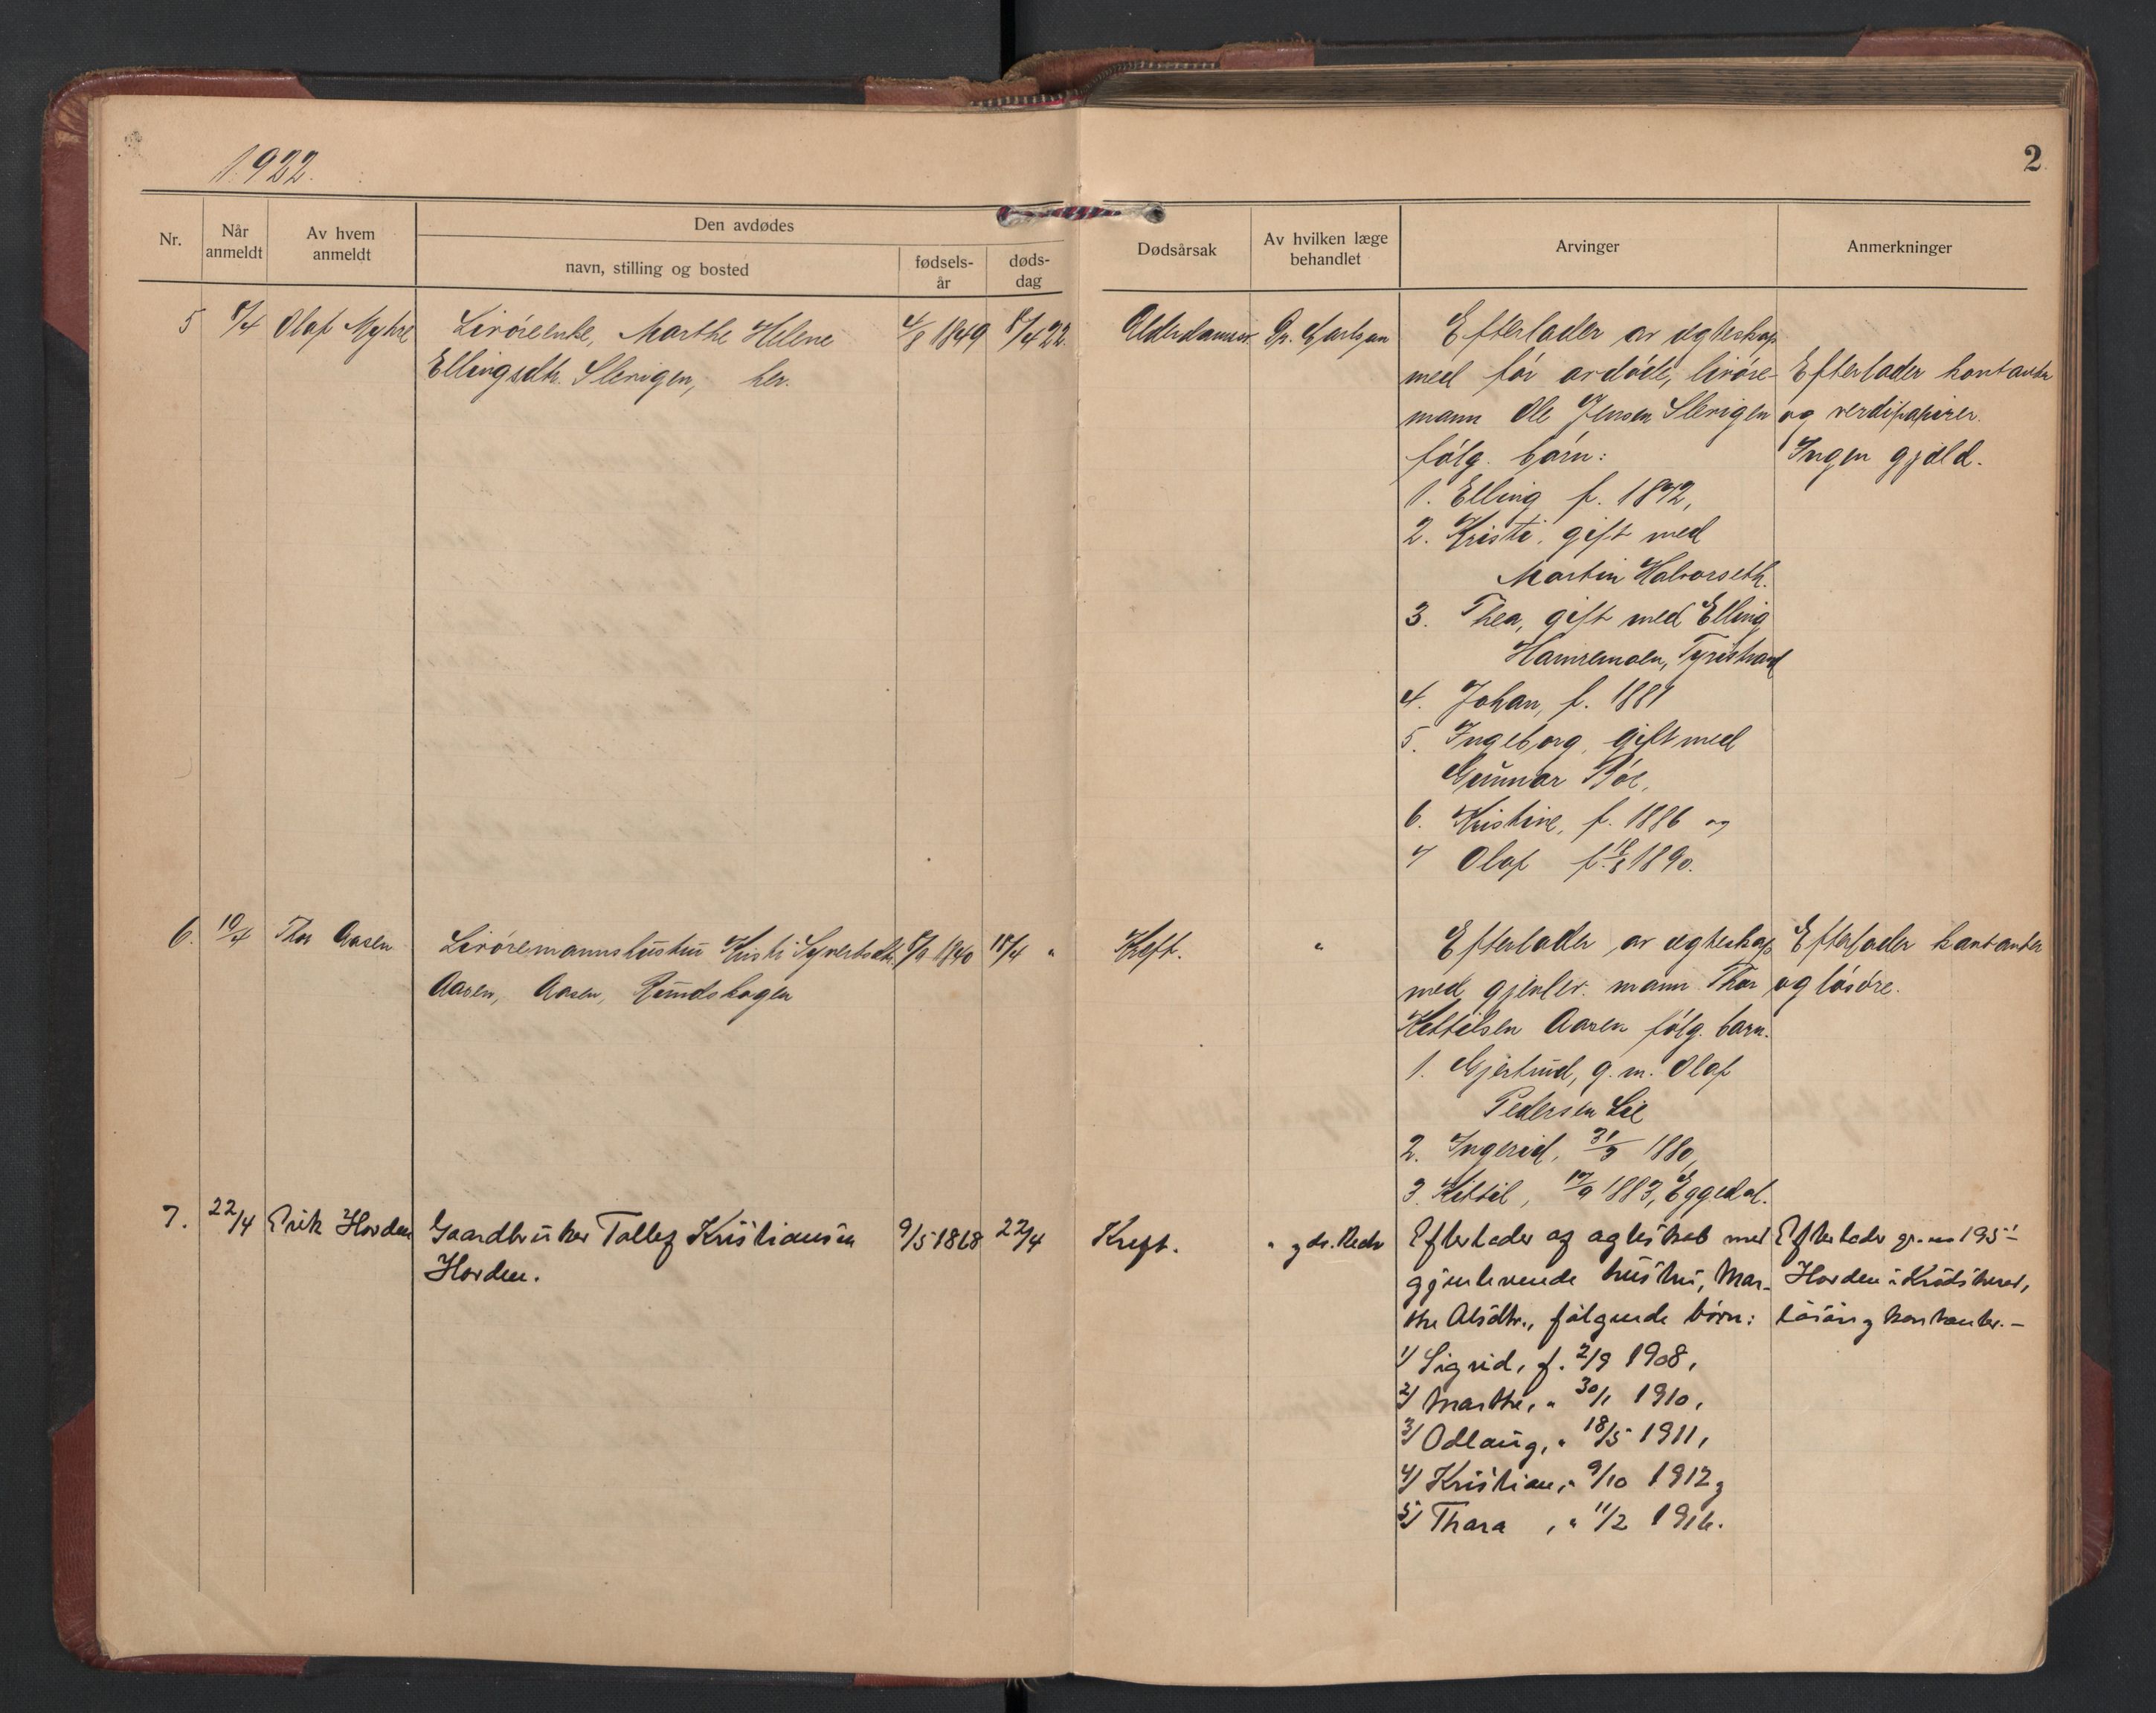 1922.
2
Nr.
Når anmeldt
Av hvem anmeldt
Den avdødes
navn, stilling og bosted
fødsels-år
døds-dag
Dødsårsak
Av hvilken læge behandlet
Arvinger
Anmerkninger
5 8/4 Olaf Myhre Livøreenke, Marthe Helene 4/8 1849 8/4 22. Alderdomssv. Dr. Efterlader av egteskap
Ellingsdtr. Slevigen, her. med før avdøde, livøre- Efterlader kontanter
mann Ole Jensen Slevigen og verdipapirer.
følg. børn: Ingen gjæld.
1. Elling f. 1872,
2. Kristi, gift med
Martin Halvorseth.
3. Thea, gift med Elling
Hamremoen, Tyristrand
4. Johan, f. 1881
5. Ingeborg, gift med
Gunnar Bøe,
6. Kristine, f. 1886 og
7 Olaf f. 18/8 1890.
6. 19/4 Thor Aasen Livøremannshustru Kristi Syvertsdtr. 8/9 1840 18/4 " Kreft. " Efterlader av egteskap Efterlader kontanter
Aasen, Aasen, Rundskogen med gjenlev. mann Thor og løsøre.
Kettilsen Aasen følg. barn.
1. Gjertrud, g. m. Olaf
Pedersen Lie
2. Ingerid, 31/3 1880,
3. Kittil, 17/9 1883, Eggedal.
7. 22/4 Erik Horden Gaardbruker Tollef Kristiansen 9/5 1868 22/4 Kreft. " Efterlader af ægteskab med Efterlader gr. no 195
Horden. gjenlevende hustru, Mar- Horden i Krødsherred,
the Olsdtr., følgende børn: løsøre og kontanter. –
1) Sigrid, f. 2/9 1908,
2) Marthe, " 30/1 1910,
3) Odlaug, " 18/5 1911,
4) Kristian, " 9/10 1912 og
5) Thora, " 11/2 1916.